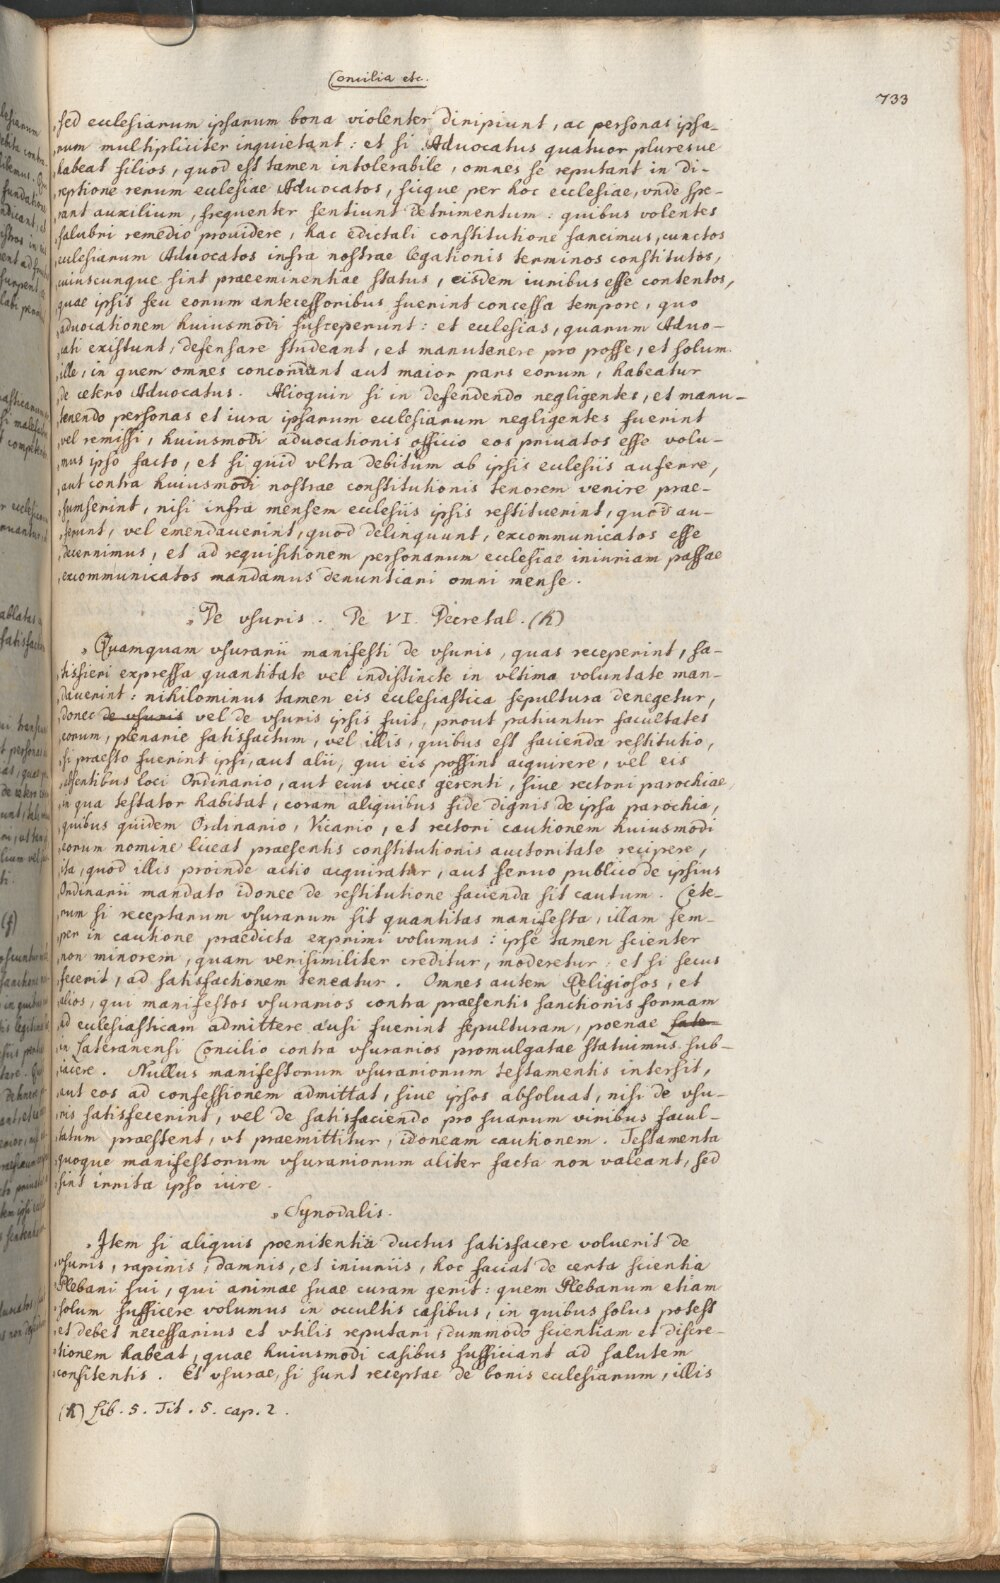 Concilia etc.
733
„sed ecclesiarum ipsarum bona violenter diripiunt, ac personas ipsa-
„rum multipliciter inquietant: et si Advocatus quatuor pluresue
„habeat filios, quod est tamen intolerabile, omnes se reputant in di-
„reptione rerum ecclesiae Aduocatos, sicque per hoc ecclesiae, vnde spe-
„rant auxilium, frequenter sentiunt detrimentum: quibus volentes
„salubri remedio prouidere, hac edictali constitutione sancimus, cunctos
„ecclesiarum Aduocatos infra nostrae legationis terminos constitutos,
„cuiuscunque sint praeeminentiae status, eisdem iuribus esse contentos,
„quae ipsis seu eorum antecessoribus fuerint concessa tempore, quo
„aduocationem huiusmodi susceperunt: et ecclesias, quarum Aduo-
„cati existunt, defensare studeant, et manutenere pro posse, et solum
„ille, in quem omnes concordant aut maior pars eorum, habeatur
„de cetero Aduocatus. Alioquin si in defendendo negligentes, et manu-
„tenendo personas et iura ipsarum ecclesiarum negligentes fuerint
„vel remissi, huiusmodi aduocationis officio eos priuatos esse volu-
„mus ipso facto, et si quid vltra debitum ab ipsis ecclesiis auferre,
„aut contra huiusmodi nostrae constitutionis tenorem venire prae-
„sumserint, nisi infra mensem ecclesiis ipsis restituerint, quod au-
„ferunt, vel emendauerint, quod delinquunt, excommunicatos esse
„decernimus, et ad requisitionem personarum ecclesiae iniuriam passae
„excommunicatos mandamus denuntiari omni mense.
„De vsuris. De VI. Decretal. (h)
„Quamquam vsurarii manifesti de vsuris, quas receperint, sa-
„tisfieri expressa quantitate vel indistincte in vltima voluntate man-
„dauerint: nihilominus tamen eis ecclesiastica sepultura denegetur,
„donec de vsuris vel de vsuris ipsis fuit, prout patiuntur facultates
„eorum, plenarie satisfactum, vel illis, quibus est facienda restitutio,
„si praesto fuerint ipsi, aut alii, qui eis possint acquirere, vel eis
„absentibus loci Ordinario, aut eius vices gerenti, siue rectori parochiae,
„in qua testator habitat, coram aliquibus fide dignis de ipsa parochia,
„quibus quidem Ordinario, Vicario, et rectori cautionem huiusmodi
„eorum nomine liceat praesentis constitutionis auctoritate recipere,
„ita, quod illis proinde actio acquiratur, aut seruo publico de ipsius
„Ordinarii mandato idonee de restitutione facienda sit cautum. Cete-
„rum si receptarum vsurarum sit quantitas manifesta, illam sem-
„per in cautione praedicta exprimi volumus: ipse tamen scienter
„non minorem, quam verisimiliter creditur, moderetur, et si secus
„fecerit, ad satisfactionem teneatur. Omnes autem Religiosos, et
„alios, qui manifestos vsurarios contra praesentis sanctionis formam
„ad ecclesiasticam admittere ausi fuerint sepulturam, poenae Late-
„in Lateranensi Concilio contra vsurarios promulgatae statuimus sub-
„iacere. Nullus manifestorum vsurariorum testamentis intersit,
„aut eos ad confessionem admittat, siue ipsos absoluat, nisi de vsu-
„ris satisfecerint, vel de satisfaciendo pro suarum viribus facul-
„tatum praestent, vt praemittitur, idoneam cautionem. Testamenta
„quoque manifestorum vsurariorum aliter facta non valeant, sed
„sint irrita ipso iure.
„Synodalis.
„Item si aliquis poenitentia ductus satisfacere voluerit de
„vsuris, rapinis, damnis, et iniuriis, hoc faciat de certa scientia
„Plebani sui, qui animae suae curam gerit: quem Plebanum etiam
„solum sufficere volumus in occultis casibus, in quibus solus potest
„et debet necessarius et vtilis reputari, dummodo scientiam et discre-
„tionem habeat, quae huiusmodi casibus sufficiant ad salutem
„confitentis. Et vsurae, si sunt receptae de bonis ecclesiarum, illis
(h) Lib. 5. Tit. 5. cap. 2.